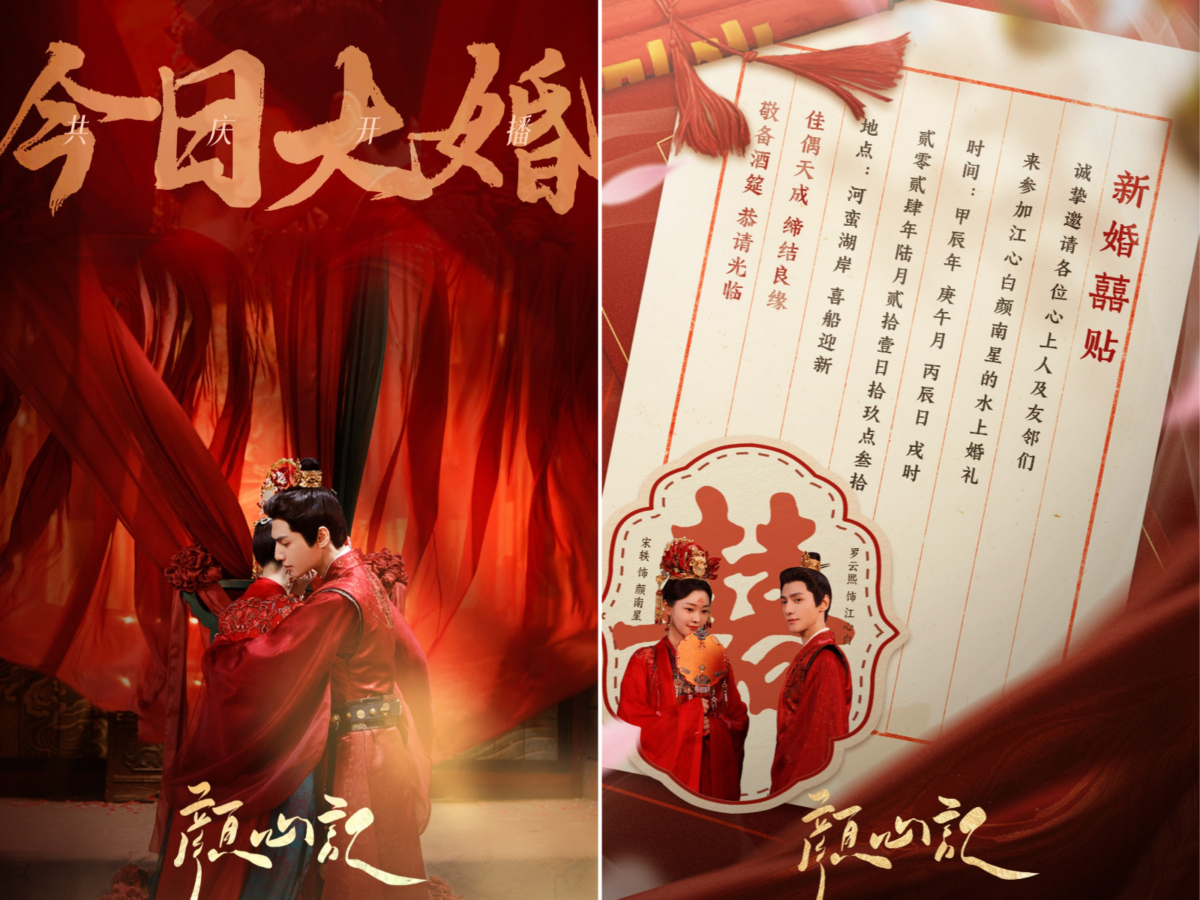 今日大婚
共庆开播
顏心記
新婚囍贴
诚挚邀请各位心上人及友邻们
来参加江心白颜南星的水上婚礼
时间：甲辰年 庚午月 丙辰日 戌时
贰零贰肆年陆月贰拾壹日拾玖点叁拾
地点：河蛮湖岸 喜船迎新
佳偶天成 缔结良缘
敬备酒筵 恭请光临
囍
宋轶 饰 颜南星
罗云熙 饰 江心
顏心記